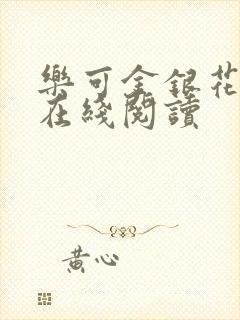 樂可金銀花
在綫閱讀
黃心